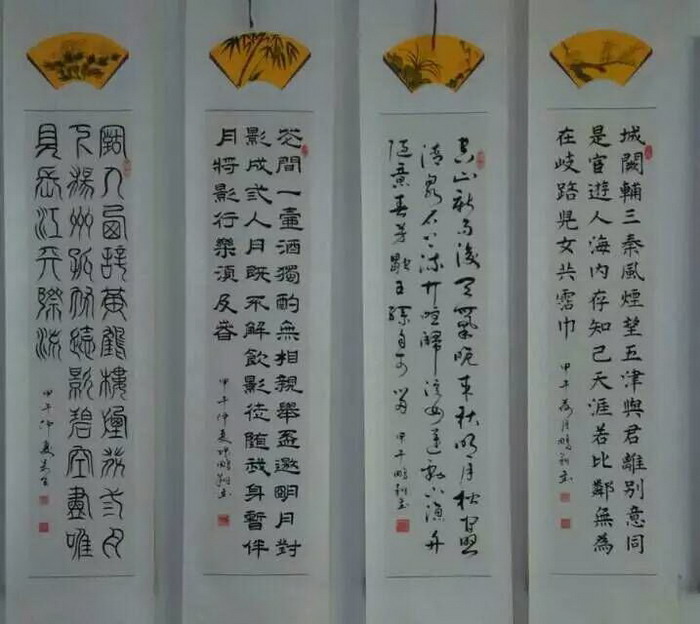 城闕輔三秦風煙望五津與君離別意同
是宦遊人海内存知己天涯若比鄰無為
在歧路児女共霑巾
甲午荷月鵬翔書
空山新雨後天氣晚來秋明月松間照
清泉石上流竹喧歸浣女蓮動下漁舟
隨意春芳歇王孫自可留
甲午鵬翔書
花間一壺酒獨酌無相親舉盃邀明月對
影成弎人月既不解飲影徒随我身暫伴
月將影行樂須及春
甲午仲夏鵬翔書
故人西辭黃鶴樓煙花弎月
下揚州孤帆遠影碧空盡唯
見長江天際流
甲午仲夏